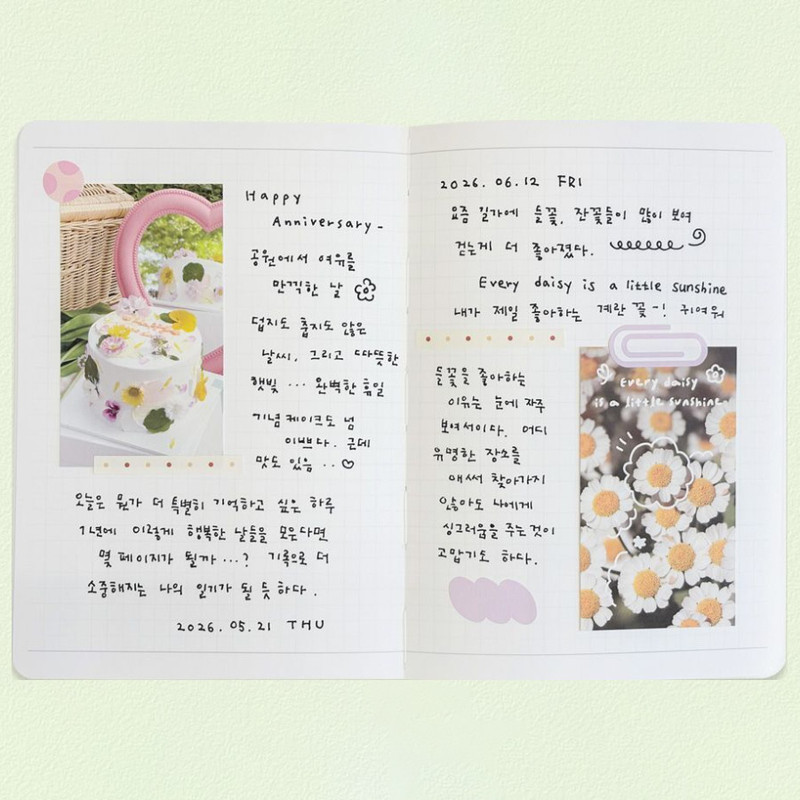 Happy
Anniversary-
공원에서 여유를
만끽한 날
덥지도 춥지도 않은
날씨, 그리고 따뜻한
햇빛 ... 완벽한 휴일
기념 케이크도 넘
이쁘다. 근데
맛도 있음 .. ♡
오늘은 뭔가 더 특별히 기억하고 싶은 하루
1년에 이렇게 행복한 날들을 모은다면
몇 페이지가 될까 ...? 기록으로 더
소중해지는 나의 일기가 될 듯 하다.
2026.05.21 THU
2026.06.12 FRI
요즘 길가에 들꽃, 잔꽃들이 많이 보여
걷는게 더 좋아졌다.
Every daisy is a little sunshine
내가 제일 좋아하는 계란 꽃-! 귀여워
들꽃을 좋아하는
이유는 눈에 자주
보여서이다. 어디
유명한 장소를
애써 찾아가지
않아도 나에게
싱그러움을 주는 것이
고맙기도 하다.
Every daisy
is a little sunshine